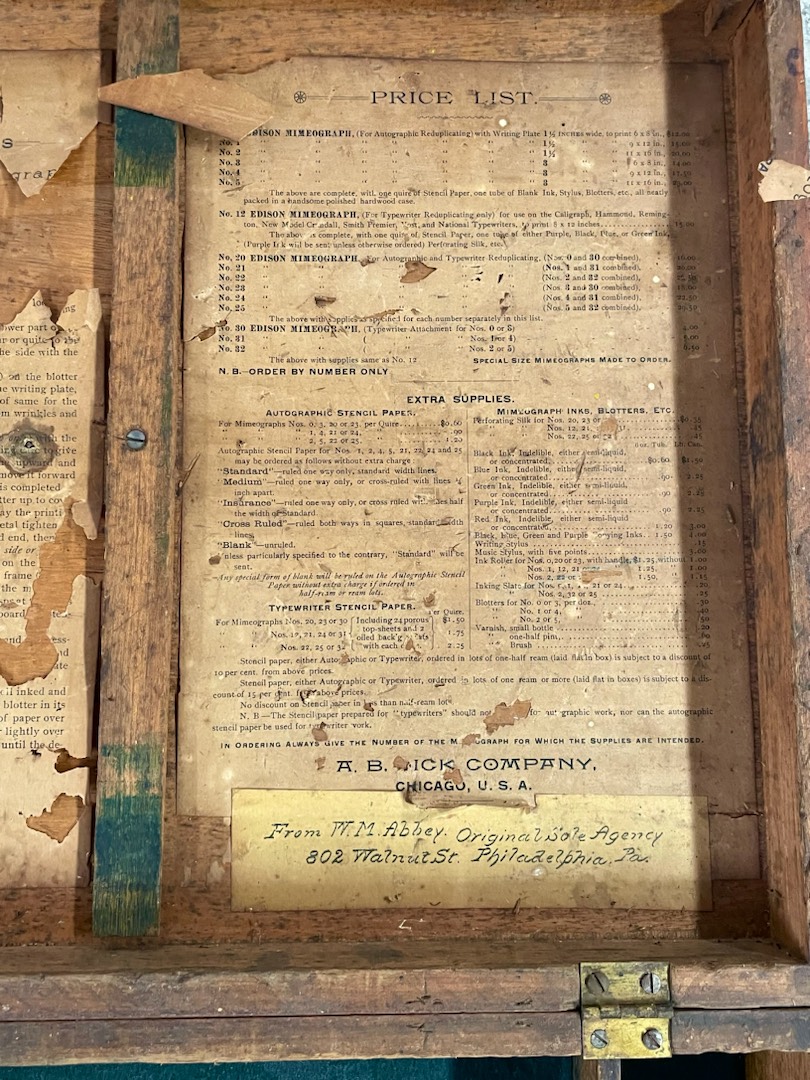 S
graph
lower part
the side with the
on the blotter
writing plate,
of same for the
wrinkles and
with the
to give
upward and
move it forward
is completed
the print
metal tighten
end, then
side or
on the
frame
the m
board
and
inked and
blotter in its
of paper over
lightly over
until the de-
PRICE LIST.
EDISON MIMEOGRAPH, (For Autographic Reduplicating) with Writing Plate 1½ INCHES wide, to print 6 x 8 in.,
No. 1 " " " " " 1½ " 9 x 12 in.,
No. 2 " " " " " 1½ " 11 x 16 in.,
No. 3 " " " " " 3 " 6 x 8 in.,
No. 4 " " " " " 3 " 9 x 12 in.,
No. 5 " " " " " 3 " 11 x 16 in.,
The above are complete, with one quire of Stencil Paper, one tube of Blank Ink, Stylus, Blotters, etc., all neatly
packed in a handsome polished hardwood case.
No. 12 EDISON MIMEOGRAPH, (For Typewriter Reduplicating only) for use on the Caligraph, Hammond, Reming-
ton, New Model Crandall, Smith Premier, Yost, and National Typewriters, to print 8 x 12 inches
The above is complete, with one quire of Stencil Paper, one tube of either Purple, Black, Blue, or Green Ink,
(Purple Ink will be sent unless otherwise ordered) Perforating Silk, etc.
No. 20 EDISON MIMEOGRAPH, For Autographic and Typewriter Reduplicating, (Nos. 0 and 30 combined),
No. 21 " " " (Nos. 1 and 31 combined),
No. 22 " " " (Nos. 2 and 32 combined),
No. 23 " " " (Nos. 3 and 30 combined),
No. 24 " " " (Nos. 4 and 31 combined),
No. 25 " " " (Nos. 5 and 32 combined),
The above with supplies as specified for each number separately in this list.
No. 30 EDISON MIMEOGRAPH, (Typewriter Attachment for Nos. 0 or 3)
No. 31 " ( " " Nos. 1 or 4)
No. 32 " " " Nos. 2 or 5)
The above with supplies same as No. 12 SPECIAL SIZE MIMEOGRAPHS MADE TO ORDER.
N. B.—ORDER BY NUMBER ONLY
EXTRA SUPPLIES.
AUTOGRAPHIC STENCIL PAPER.
For Mimeographs Nos. 0, 3, 20 or 23, per Quire $0.60
" " 1, 4, 21 or 24, " .90
" " 2, 5, 22 or 25, " 1.20
Autographic Stencil Paper for Nos. 1, 2, 4, 5, 21, 22, 24 and 25
may be ordered as follows without extra charge
"Standard"—ruled one way only, standard width lines.
"Medium"—ruled one way only, or cross-ruled with lines ¼
inch apart.
"Insurance"—ruled one way only, or cross ruled with lines half
the width of Standard.
"Cross Ruled"—ruled both ways in squares, standard width
lines.
"Blank"—unruled.
Unless particularly specified to the contrary, "Standard" will be
sent.
Any special form of blank will be ruled on the Autographic Stencil
Paper without extra charge if ordered in
half-ream or ream lots.
TYPEWRITER STENCIL PAPER.
per Quire.
For Mimeographs Nos. 20, 23 or 30 Including 24 porous $1.50
" Nos. 12, 21, 24 or 31 top-sheets and 2 oiled back'g sheets 1.75
" Nos. 22, 25 or 32 with each 2.25
MIMEOGRAPH INKS, BLOTTERS, ETC.
Perforating Silk for Nos. 20, 23 or
" " Nos. 12, 21, .45
" " Nos. 22, 25 or .45
Black Ink, Indelible, either semi-liquid
or concentrated $0.60
Blue Ink, Indelible, either semi-liquid
or concentrated .90 2.25
Green Ink, Indelible, either semi-liquid
or concentrated .90 2.25
Purple Ink, Indelible, either semi-liquid
or concentrated .90 2.25
Red, Ink, Indelible, either semi-liquid
or concentrated 1.20 3.00
Black, Blue, Green and Purple Copying Inks. 1.50 4.00
Writing Stylus .15
Music Stylus, with five points 3.00
Ink Roller for Nos. 0, 20 or 23, with handle, $1.25, without 1.00
" " Nos. 1, 12, 21 1.25. " 1.00
" " Nos. 2, 22 or 1.50, " 1.15
Inking Slate for Nos. 21 or 24 .20
" " Nos. 2, 32 or 25 .25
Blotters for No. 0 or 3, per doz. .30
" No. 1 or 4, .40
" No. 2 or 5, .50
Varnish, small bottle .20
" one-half pint, .60
" Brush
Stencil paper, either Autographic or Typewriter, ordered in lots of one-half ream (laid flat in box) is subject to a discount of
10 per cent. from above prices.
Stencil paper, either Autographic or Typewriter, ordered in lots of one ream or more (laid flat in boxes) is subject to a dis-
count of 15 per cent. from above prices.
No discount on Stencil paper in less than half-ream lots.
N. B—The Stencil paper prepared for "typewriters" should not for autographic work, nor can the autographic
stencil paper be used for typewriter work.
IN ORDERING ALWAYS GIVE THE NUMBER OF THE MIMEOGRAPH FOR WHICH THE SUPPLIES ARE INTENDED.
A. B. DICK COMPANY,
CHICAGO, U. S. A.
From W. M. Abbey. Original Sole Agency
802 Walnut St. Philadelphia, Pa.